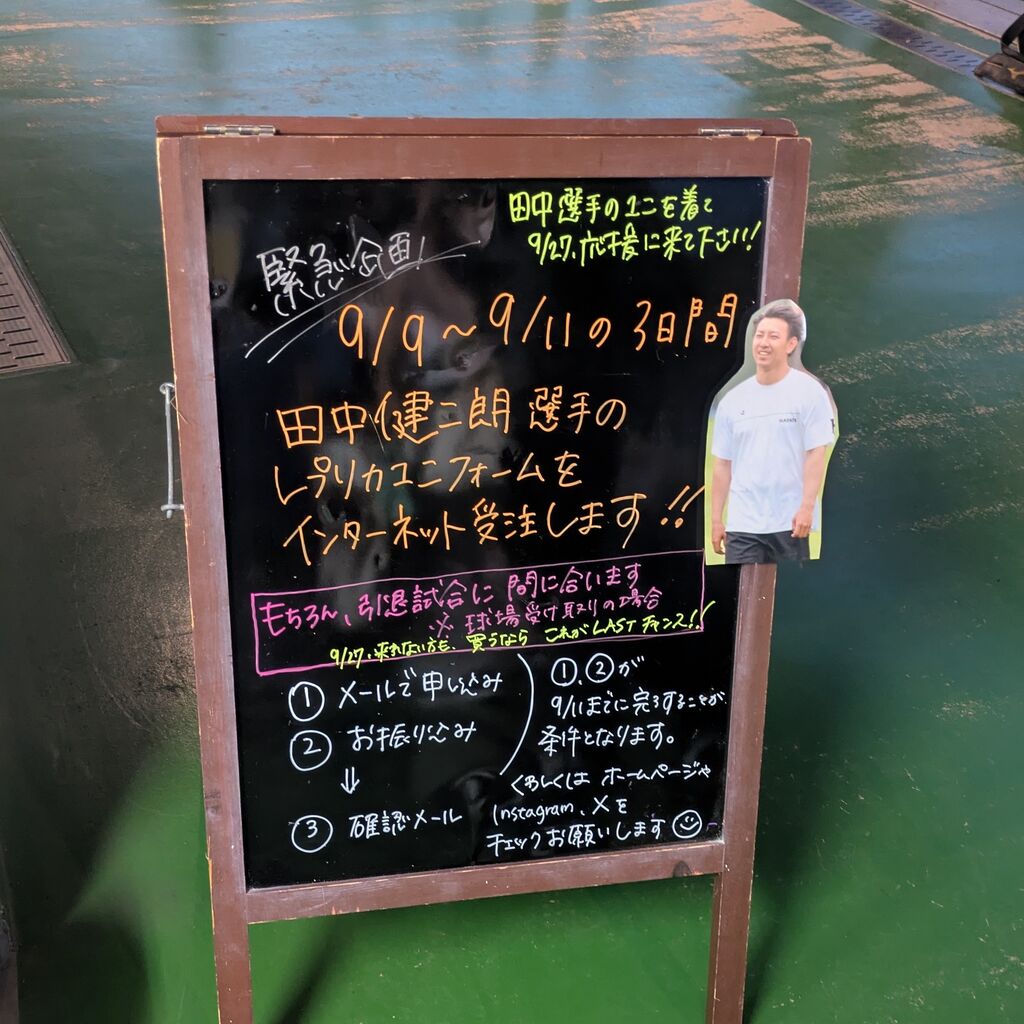 田中選手のユニを着て
9/27、応援に来て下さい!
緊急企画!
9/9～9/11の3日間
田中健二朗選手の
レプリカユニフォームを
インターネット受注します!!
もちろん、引退試合に間に合います
※球場受け取りの場合
9/27、来れない方も、買うなら これがLASTチャンス!!
① メールで申し込み
② お振り込み
⇓
③ 確認メール
①、②が
9/11までに完了することが、
条件となります。
くわしくは ホームページや
Instagram、Xを
チェックお願いします